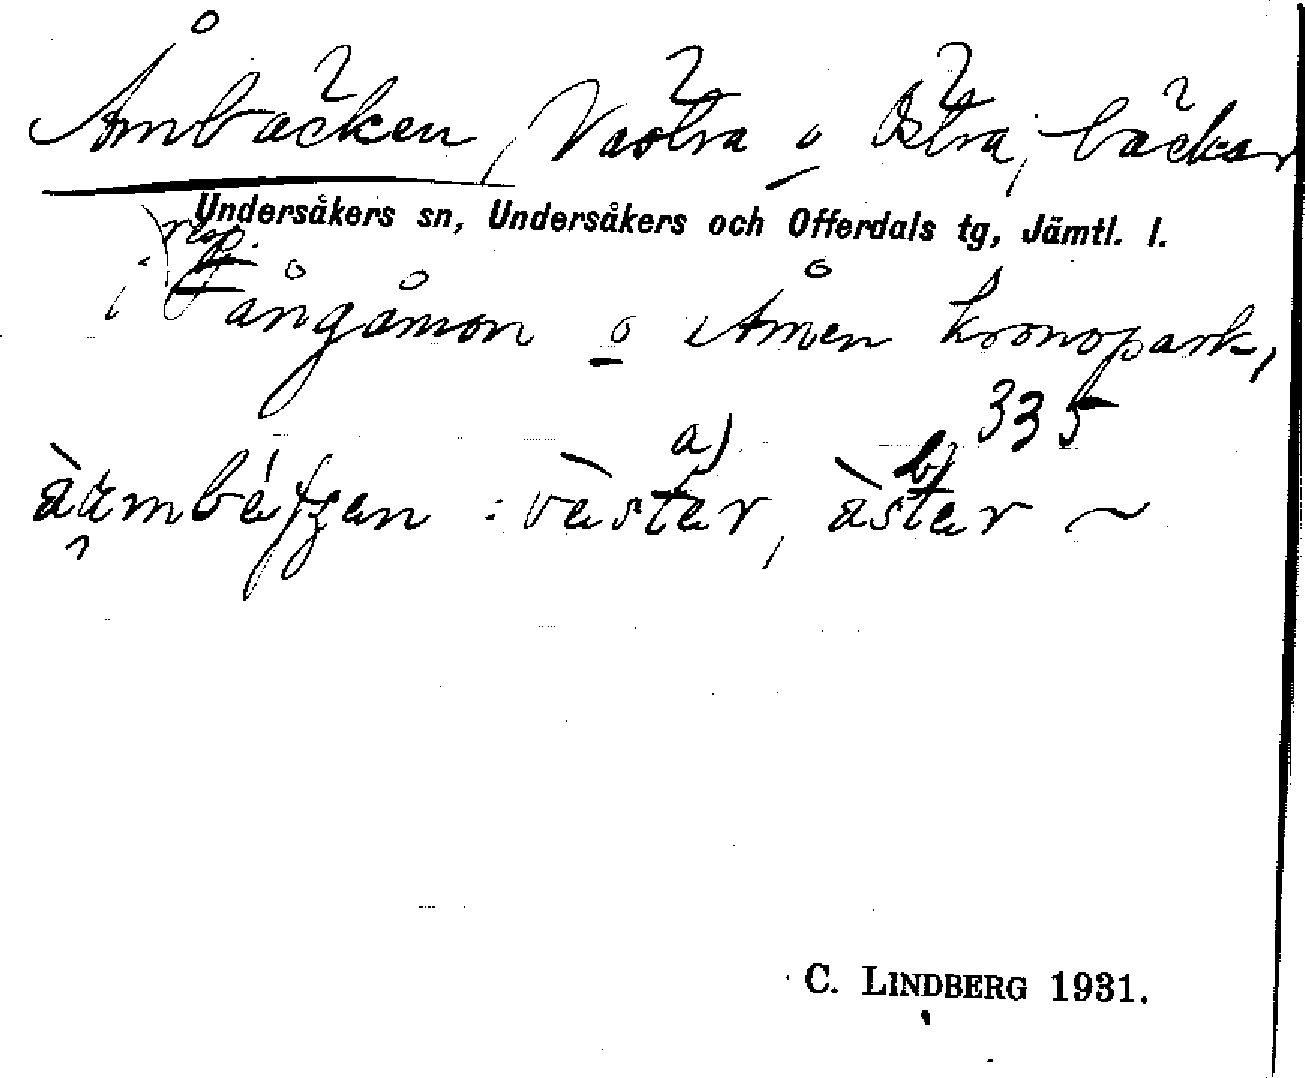 Åmbäcken, Västra o Östra; bäckar
Undersåkers sn, Undersåkers och Offerdals tg, Jämtl. l.
i Fångåmon o Åmen kronopark,
335
a) b)
: vèster, àster ~
C. LINDBERG 1931.